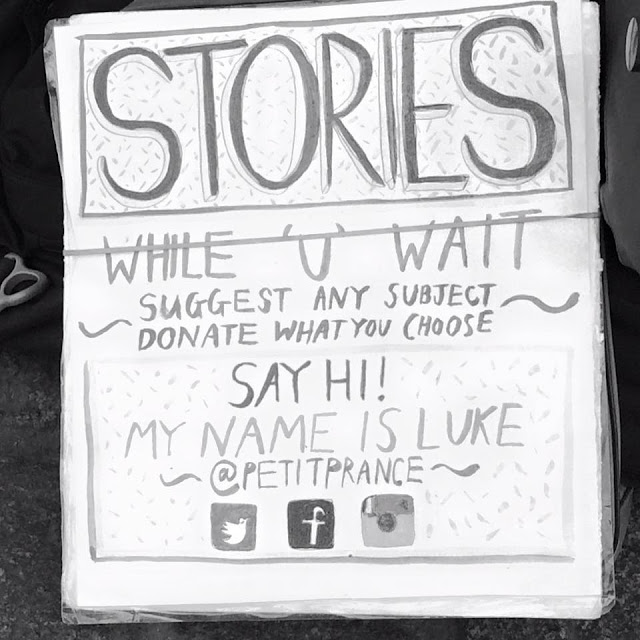 STORIES
WHILE 'U' WAIT
SUGGEST ANY SUBJECT
DONATE WHAT YOU CHOOSE
SAY HI!
MY NAME IS LUKE
@PETITPRANCE
f